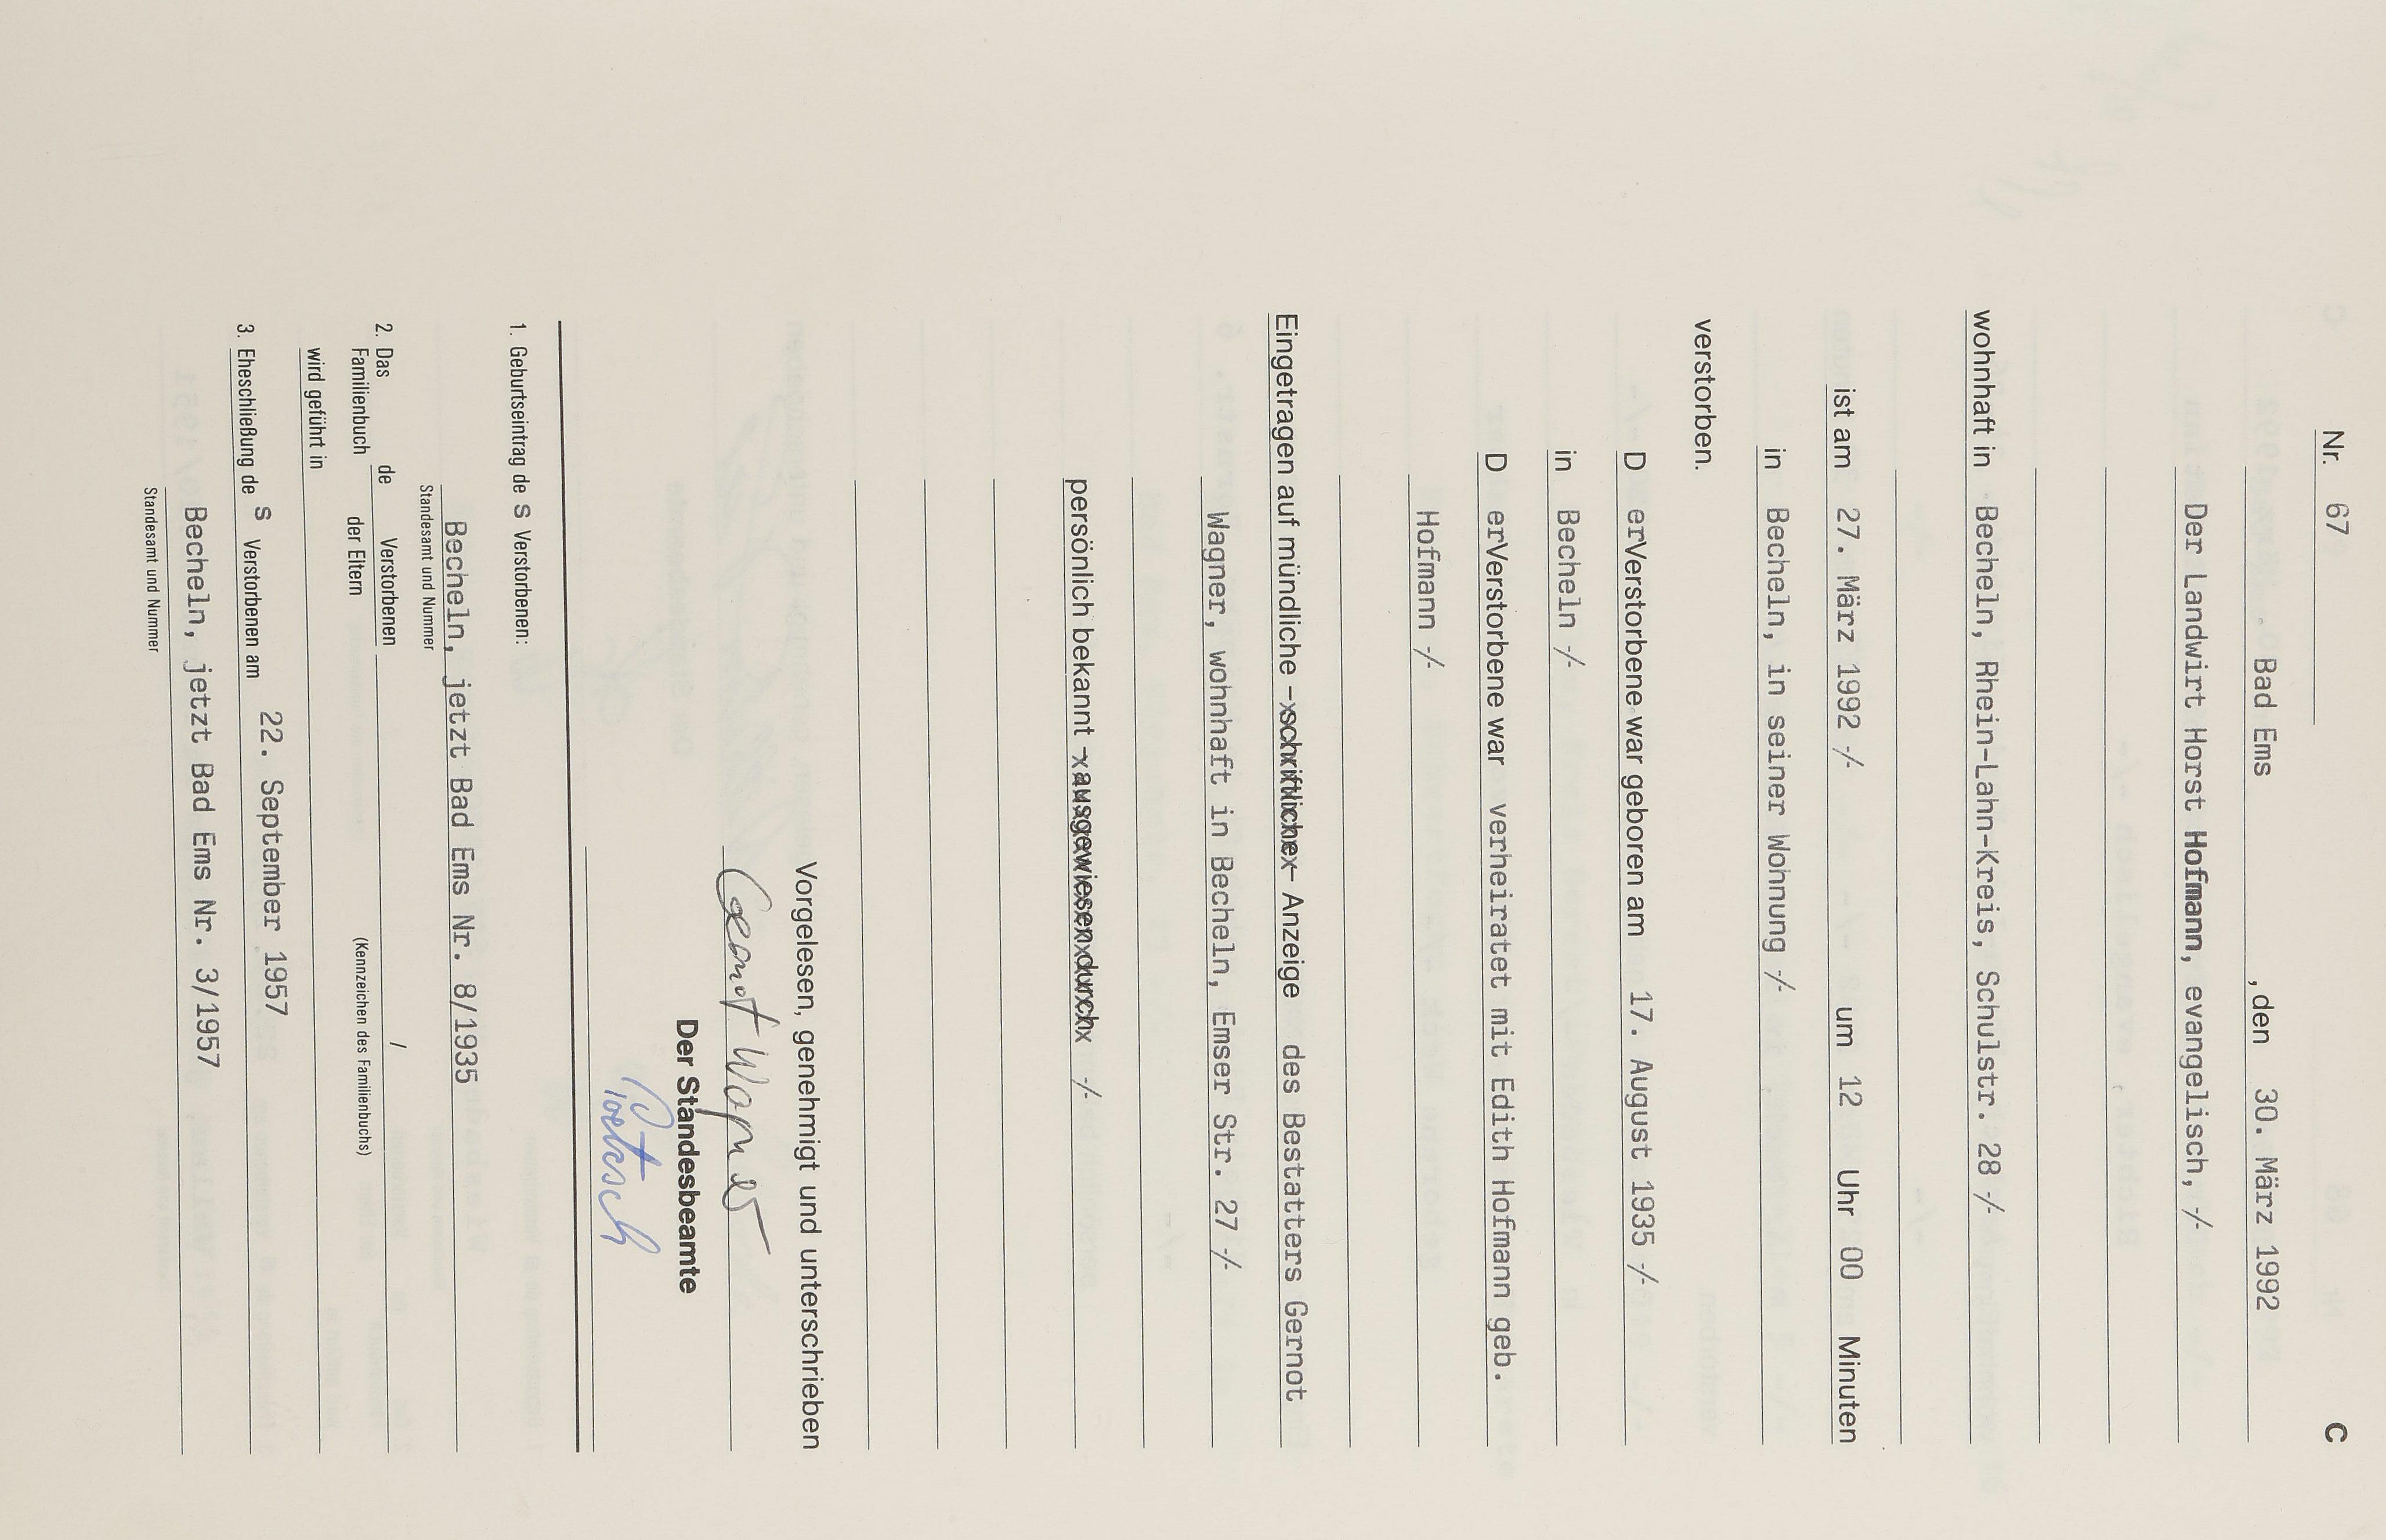 Nr. 67 C
Bad Ems , den 30. März 1992
Der Landwirt Horst Hofmann, evangelisch, -/-
wohnhaft in Becheln, Rhein-Lahn-Kreis, Schulstr. 28 -/-
ist am 27. März 1992 -/- um 12 Uhr 00 Minuten
in Becheln, in seiner Wohnung -/-
verstorben.
D erVerstorbene war geboren am 17. August 1935 -/-
in Becheln -/-
D erVerstorbene war verheiratet mit Edith Hofmann geb.
Hofmann -/-
Eingetragen auf mündliche - schriftliche - Anzeige des Bestatters Gernot
Wagner, wohnhaft in Becheln, Emser Str. 27 -/-
persönlich bekannt - ausgewiesen durch -/-
Vorgelesen, genehmigt und unterschrieben
Gernot Wagner
Der Standesbeamte
Poetzsch
1. Geburtseintrag de s Verstorbenen:
Becheln, jetzt Bad Ems Nr. 8/1935
Standesamt und Nummer
2. Das de Verstorbenen /
Familienbuch der Eltern (Kennzeichen des Familienbuchs)
wird geführt in
3. Eheschließung de s Verstorbenen am 22. September 1957
Becheln, jetzt Bad Ems Nr. 3/1957
Standesamt und Nummer